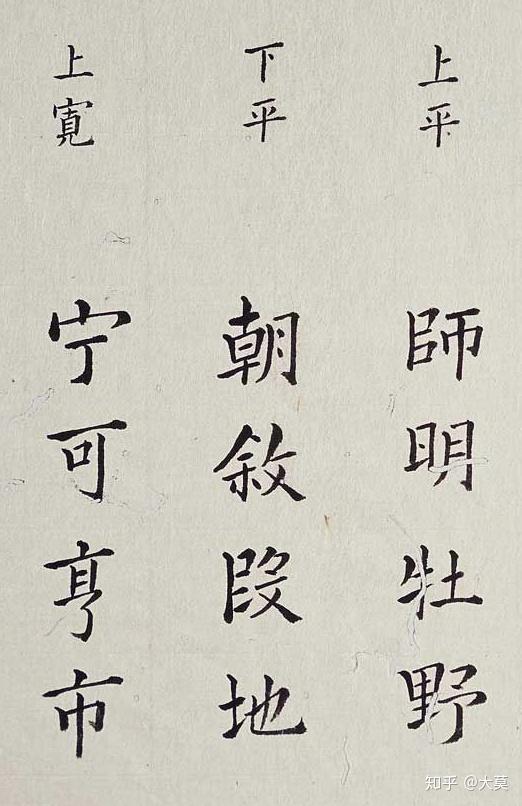 上平
師明牡野
下平
朝敘段地
上寬
宁可亨市
知乎 @大莫